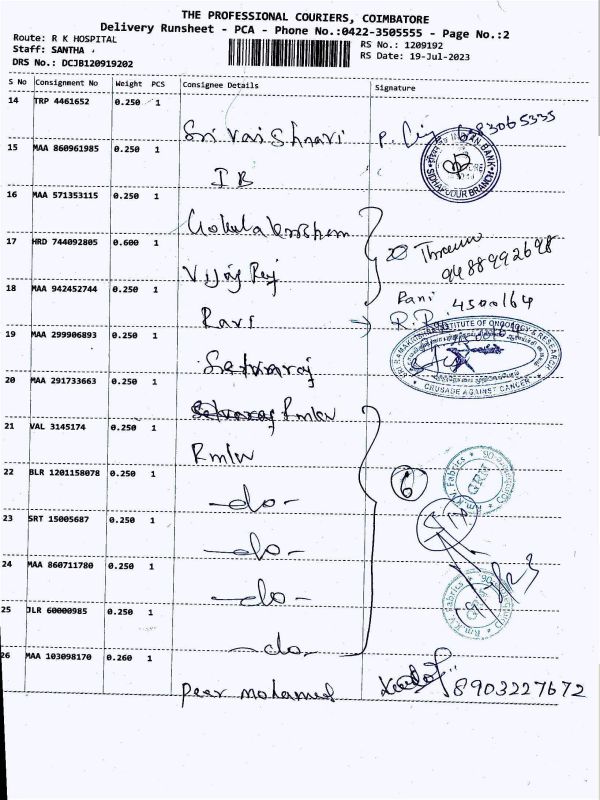 THE PROFESSIONAL COURIERS, COIMBATORE
Delivery Runsheet - PCA - Phone No.:0422-3505555 - Page No.:2
Route: R K HOSPITAL
Staff: SANTHA
DRS No.: DCJB120919202
RS No.: 1209192
RS Date: 19-Jul-2023
S No Consignment No Weight PCS Consignee Details Signature
14 TRP 4461652 0.250 1
Sri Vaishnavi
15 MAA 860961985 0.250 1
IB
INDIAN BANK
SIDHAPUDUR BRANCH
16 MAA 571353115 0.250 1
Gokulakrishnan
17 HRD 744092805 0.600 1
9488992698
Vijay Raj
18 MAA 942452744 0.250 1
Rani 4500164
Ravi
R.R.
19 MAA 299906893 0.250 1
SRI RAMAKRISHNA INSTITUTE OF ONCOLOGY & RESEARCH
CRUSADE AGAINST CANCER
Selvaraj
20 MAA 291733663 0.250 1
Rmkv
21 VAL 3145174 0.250 1
Rmkv
22 BLR 1201158078 0.250 1
6
Rm.K.V Fabrics
GRN
-do-
23 SRT 15005687 0.250 1
-do-
24 MAA 860711780 0.250 1
-do-
25 JLR 60000985 0.250 1
Rm.K.V Fabrics
GRN
-do-
26 MAA 103098170 0.260 1
Peer Mohamed
8903227672